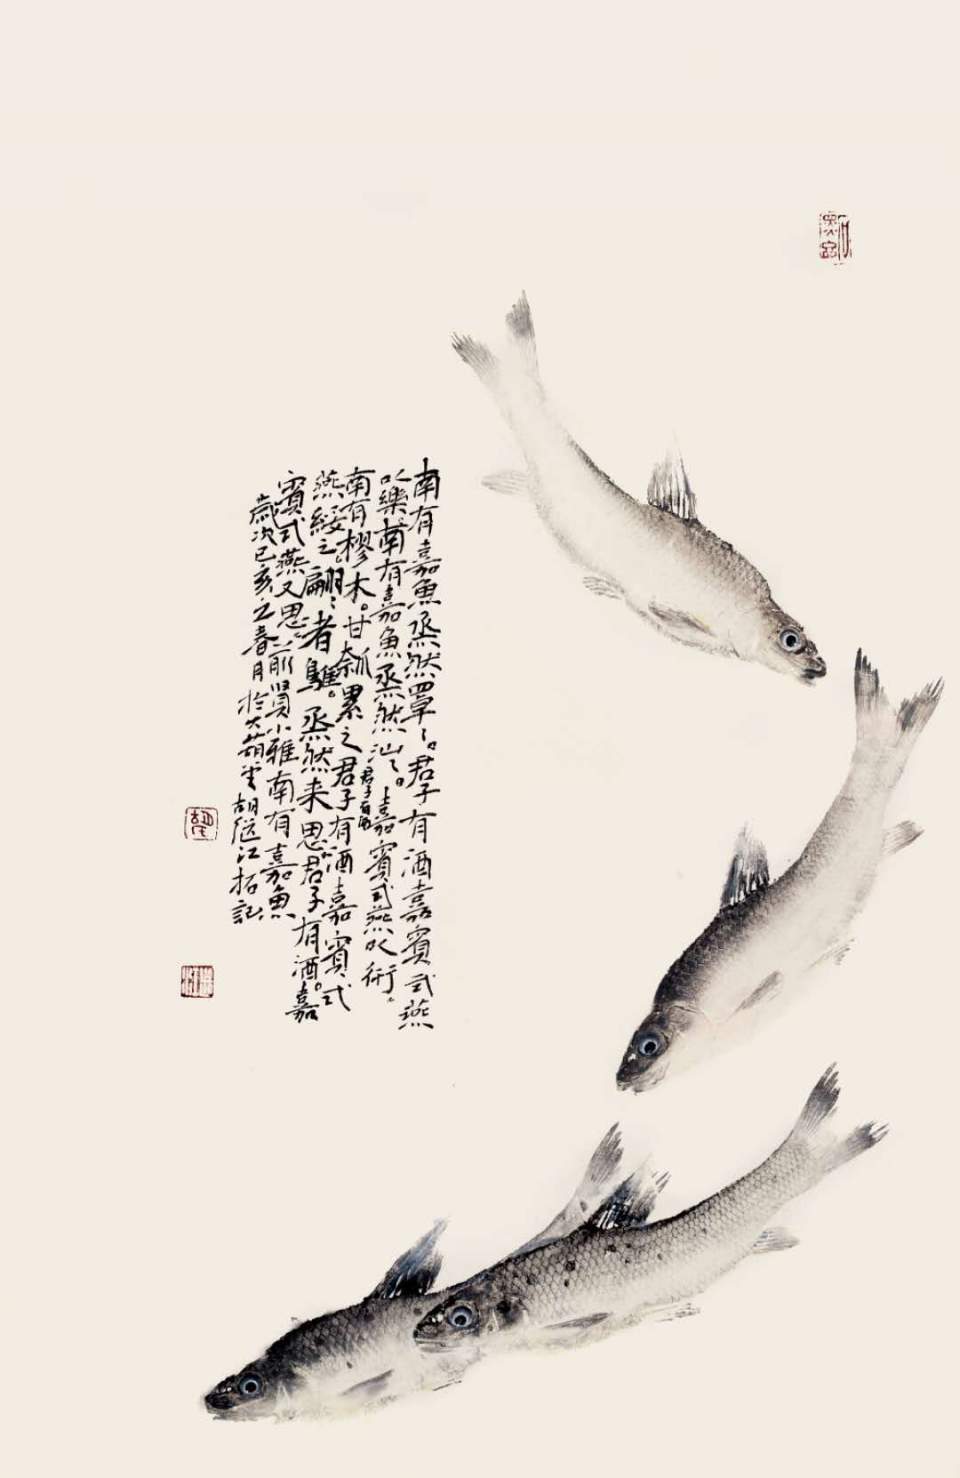 南有嘉魚烝然罩ヽ。君子有酒嘉賓式燕
以樂。南有嘉魚烝然汕ヽ。君子有酒嘉賓式燕以衎。
南有樛木。甘瓠累之君子有酒嘉賓式
燕綏之。翩ヽ者鵻。烝然来思君子有酒。嘉
賓式燕又思。前賢小雅南有嘉魚
歲次己亥之春月於大 胡從江拓記